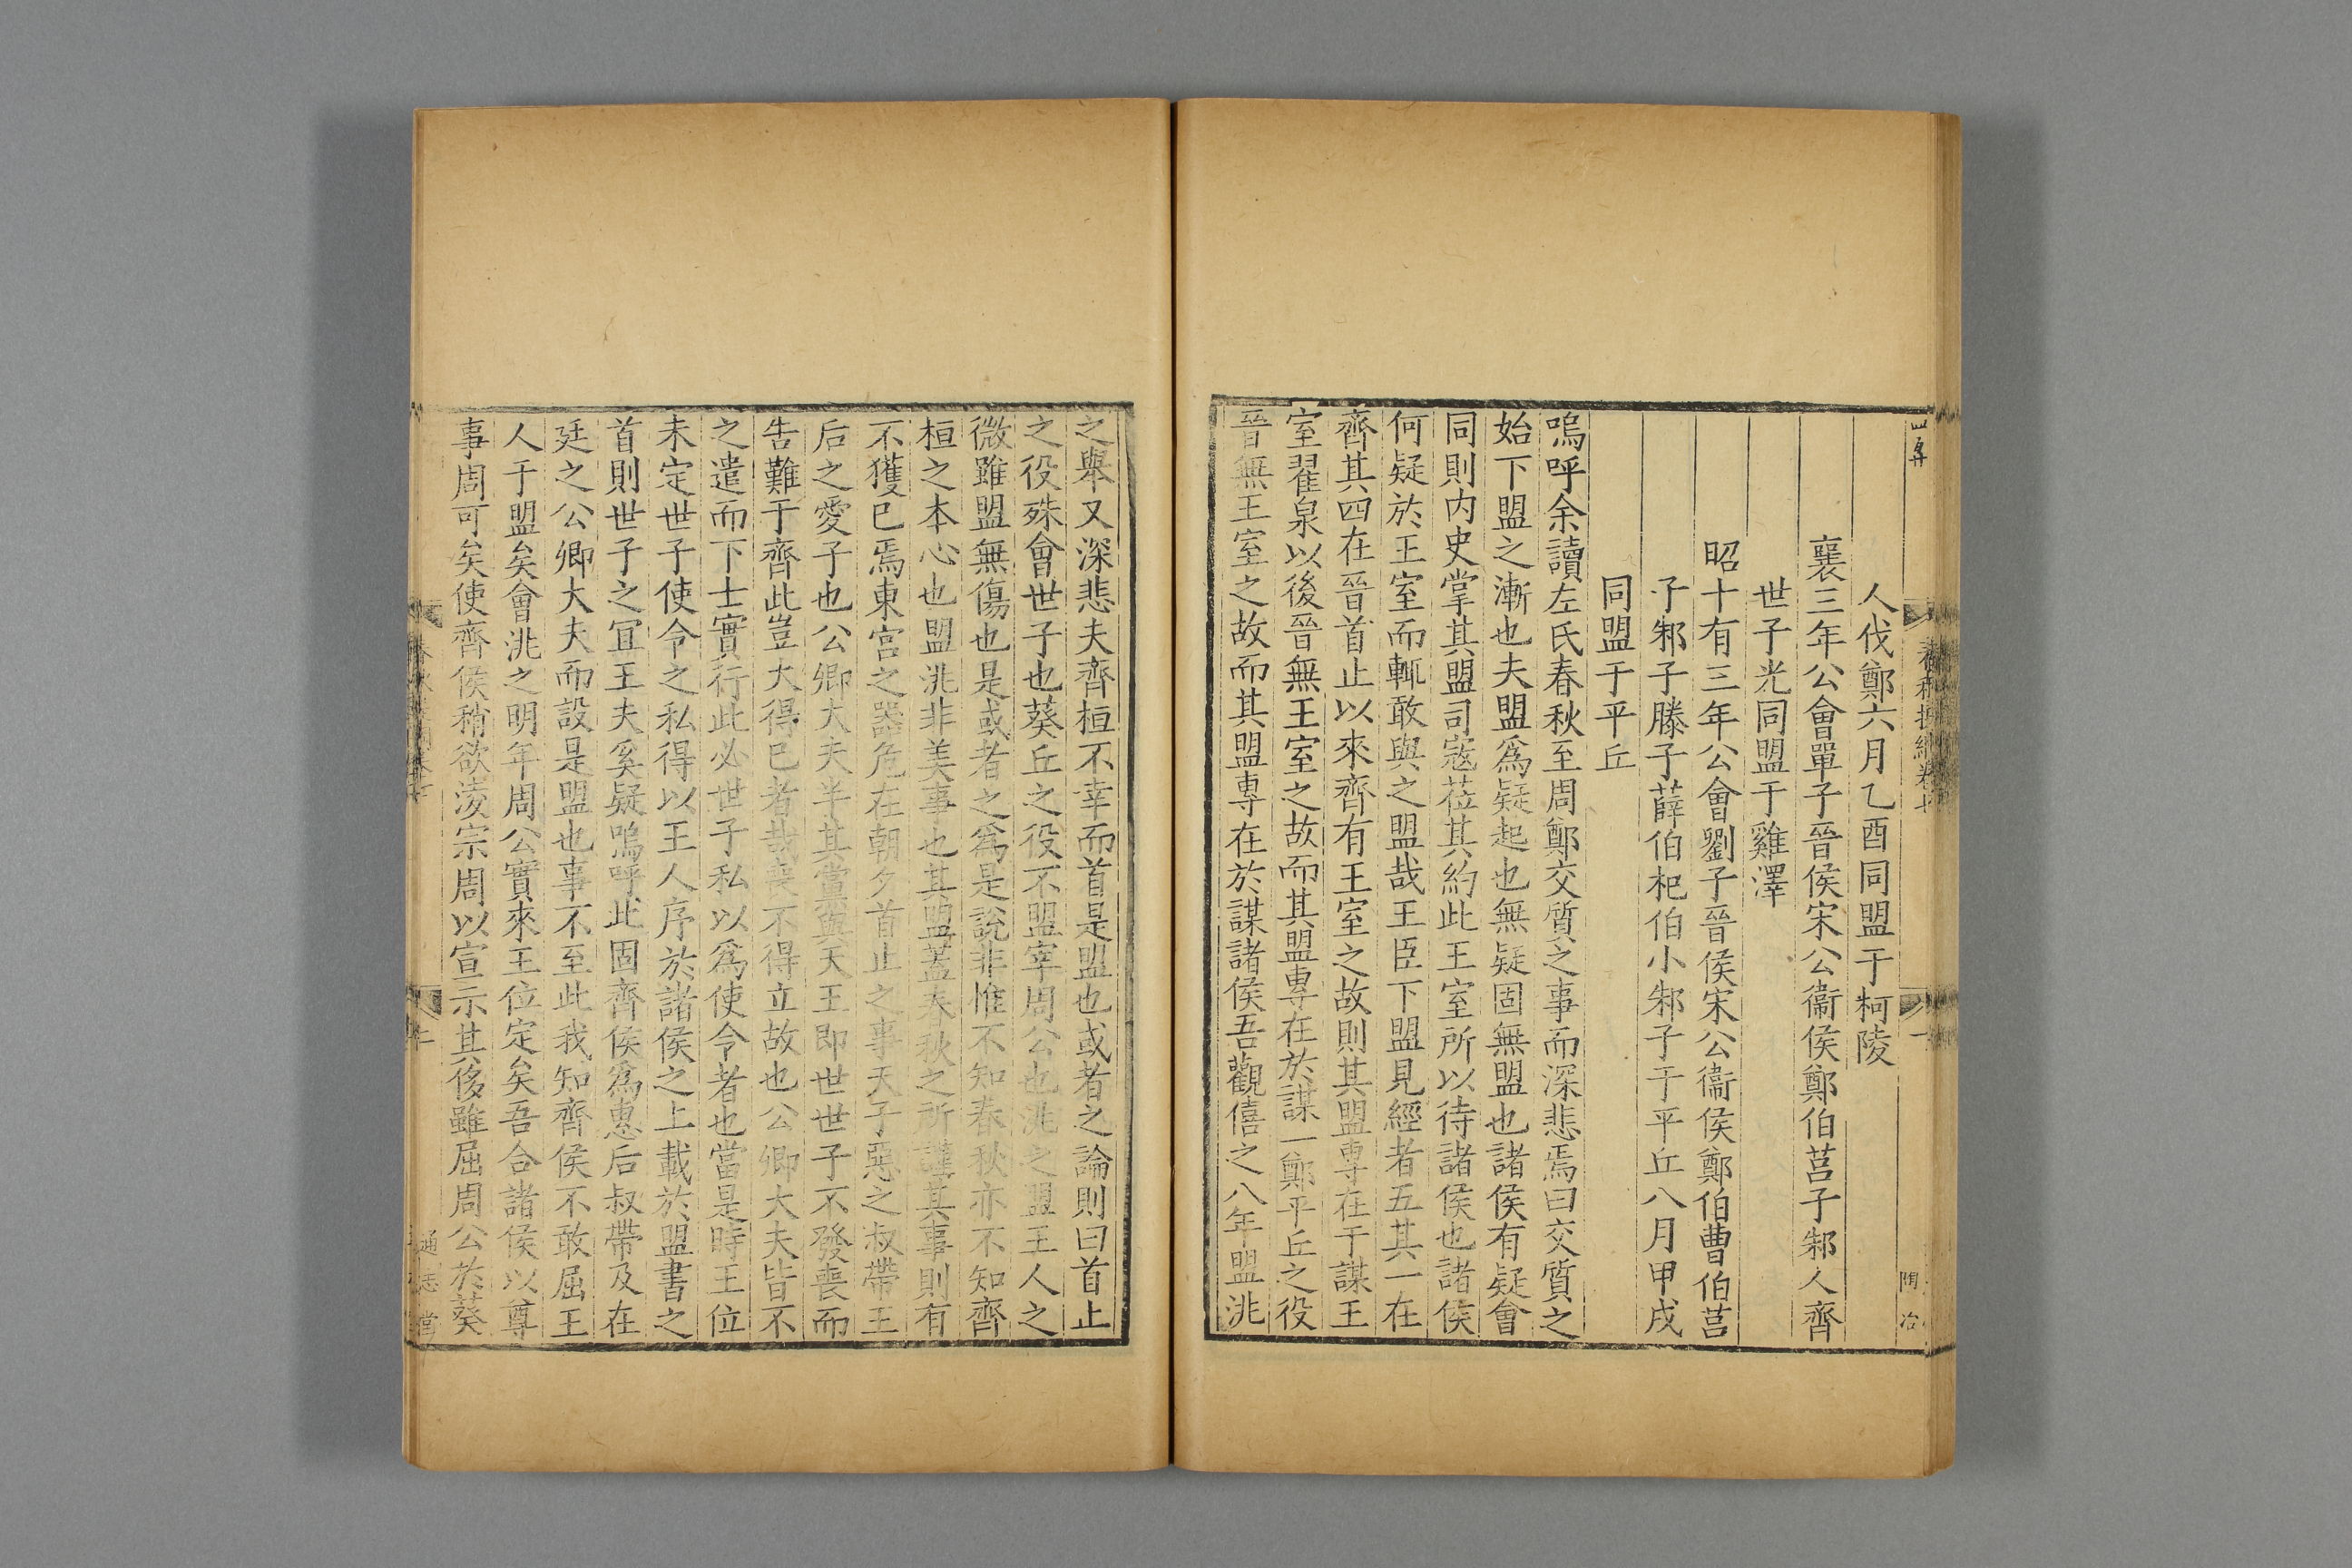 人伐鄭六月乙酉同盟于柯陵
襄三年公會單子晉侯宋公衞侯鄭伯莒子邾人齊
世子光同盟于雞澤
昭十有三年公會劉子晉侯宋公衞侯鄭伯曹伯莒
子邾子滕子薛伯杞伯小邾子于平丘八月甲戌
同盟于平丘
嗚呼余讀左氏春秋至周鄭交質之事而深悲焉曰交質之
始下盟之漸也夫盟爲疑起也無疑固無盟也諸侯有疑會
同則内史掌其盟司寇莅其約此王室所以待諸侯也諸侯
何疑於王室而輒敢與之盟哉王臣下盟見經者五其一在
齊其四在晉首止以來齊有王室之故則其盟専在于謀王
室翟泉以後晉無王室之故而其盟専在於謀一鄭平丘之役
晉無王室之故而其盟専在於謀諸侯吾觀僖之八年盟洮
之舉又深悲夫齊桓不幸而首是盟也或者之論則曰首止
之役殊會世子也葵丘之役不盟宰周公也洮之盟王人之
微雖盟無傷也是或者之爲是說非惟不知春秋亦不知齊
桓之本心也盟洮非美事也其盟蓋春秋之所謹其事則有
不獲已焉東宮之器危在朝夕首止之事天子惡之叔帶王
后之愛子也公卿大夫半其黨與天王即世世子不發喪而
告難于齊此豈大得已者哉喪不得立故也公卿大夫皆不
之遣而下士實行此必世子私以爲使令者也當是時王位
未定世子使令之私得以王人序於諸侯之上載於盟書之
首則世子之宜王夫奚疑嗚呼此固齊侯爲惠后叔帶及在
廷之公卿大夫而設是盟也事不至此我知齊侯不敢屈王
人于盟矣會洮之明年周公實來王位定矣吾合諸侯以尊
事周可矣使齊侯稍欲淩宗周以宣示其侈雖屈周公於葵
通志堂